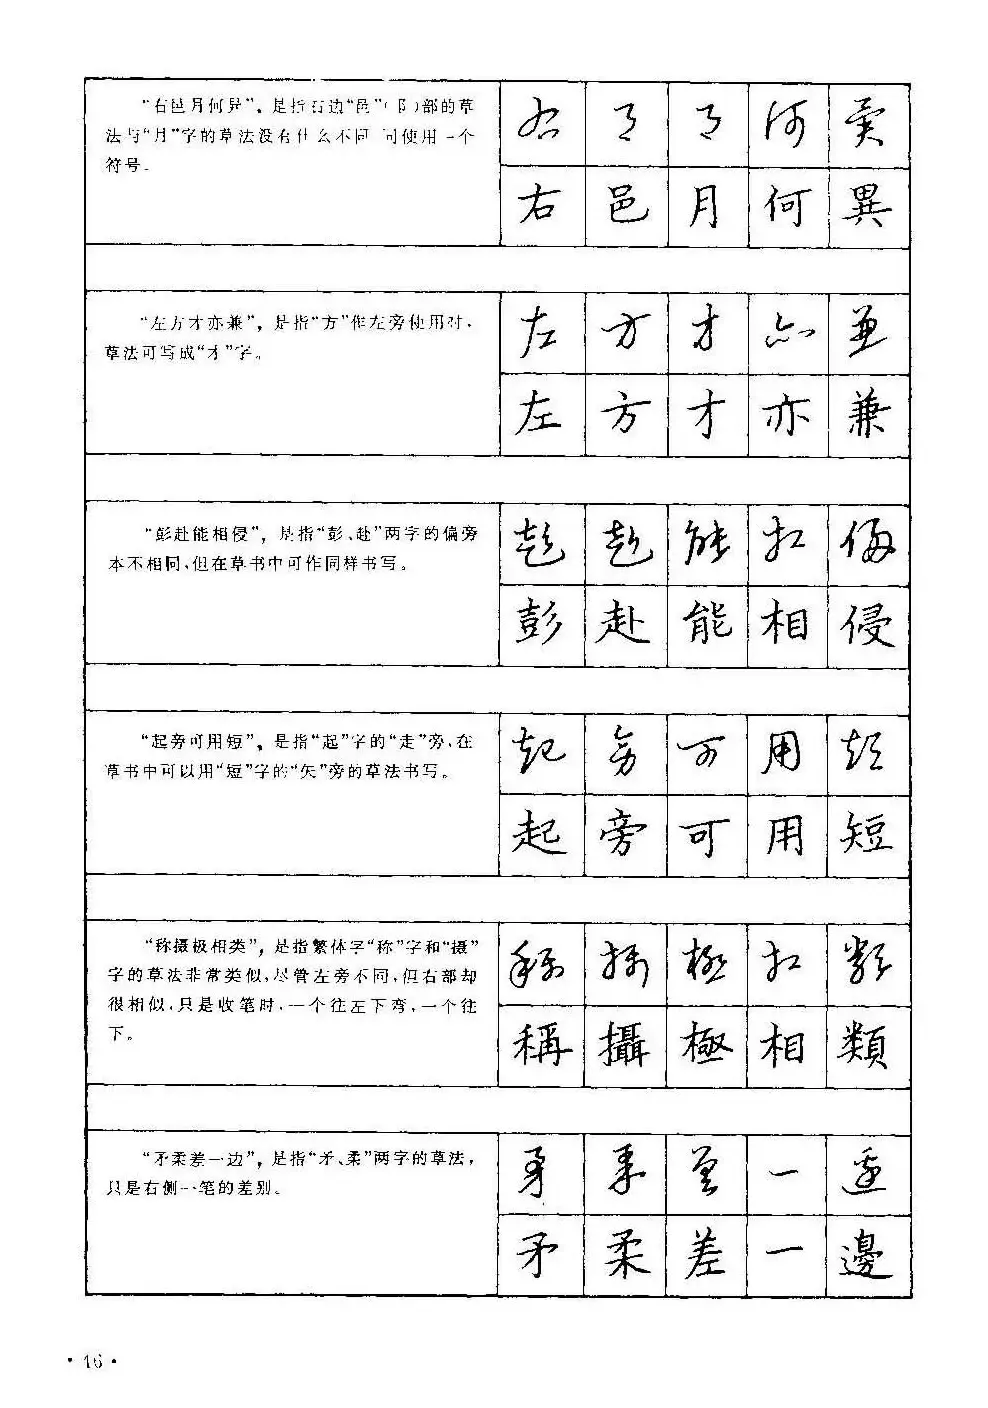 “右邑月何异”，是指右边“邑”(阝)部的草
法与“月”字的草法没有什么不同 可使用一个
符号。
右 邑 月 何 異
右 邑 月 何 異
“左方才亦兼”，是指“方”作左旁使用时，
草法可写成“才”字。
左 方 才 亦 兼
左 方 才 亦 兼
“彭赴能相侵”，是指“彭、赴”两字的偏旁
本不相同，但在草书中可作同样书写。
彭 赴 能 相 侵
彭 赴 能 相 侵
“起旁可用短”，是指“起”字的“走”旁，在
草书中可以用“短”字的“矢”旁的草法书写。
起 旁 可 用 短
起 旁 可 用 短
“称摄极相类”，是指繁体字“称”字和“摄”
字的草法非常类似，尽管左旁不同，但右部却
很相似，只是收笔时，一个往左下弯，一个往
下。
稱 攝 極 相 類
稱 攝 極 相 類
“矛柔差一边”，是指“矛、柔”两字的草法，
只是右侧一笔的差别。
矛 柔 差 一 邊
矛 柔 差 一 邊
·16·